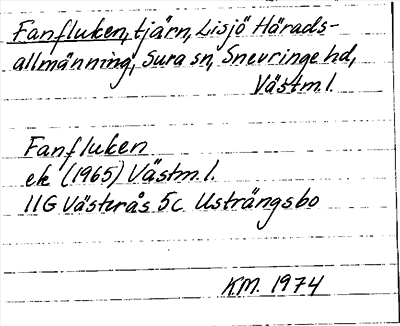 Fanfluken, tjärn, Lisjö Härads-
allmänning, Sura sn, Snevringe hd,
Västml.
Fanfluken
ek (1965) Västml.
11G Västerås 5c Usträngsbo
KM. 1974